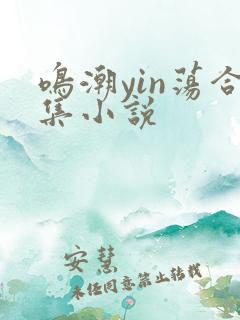 鸣潮yin荡合
集小说
安慧
未经同意禁止转载